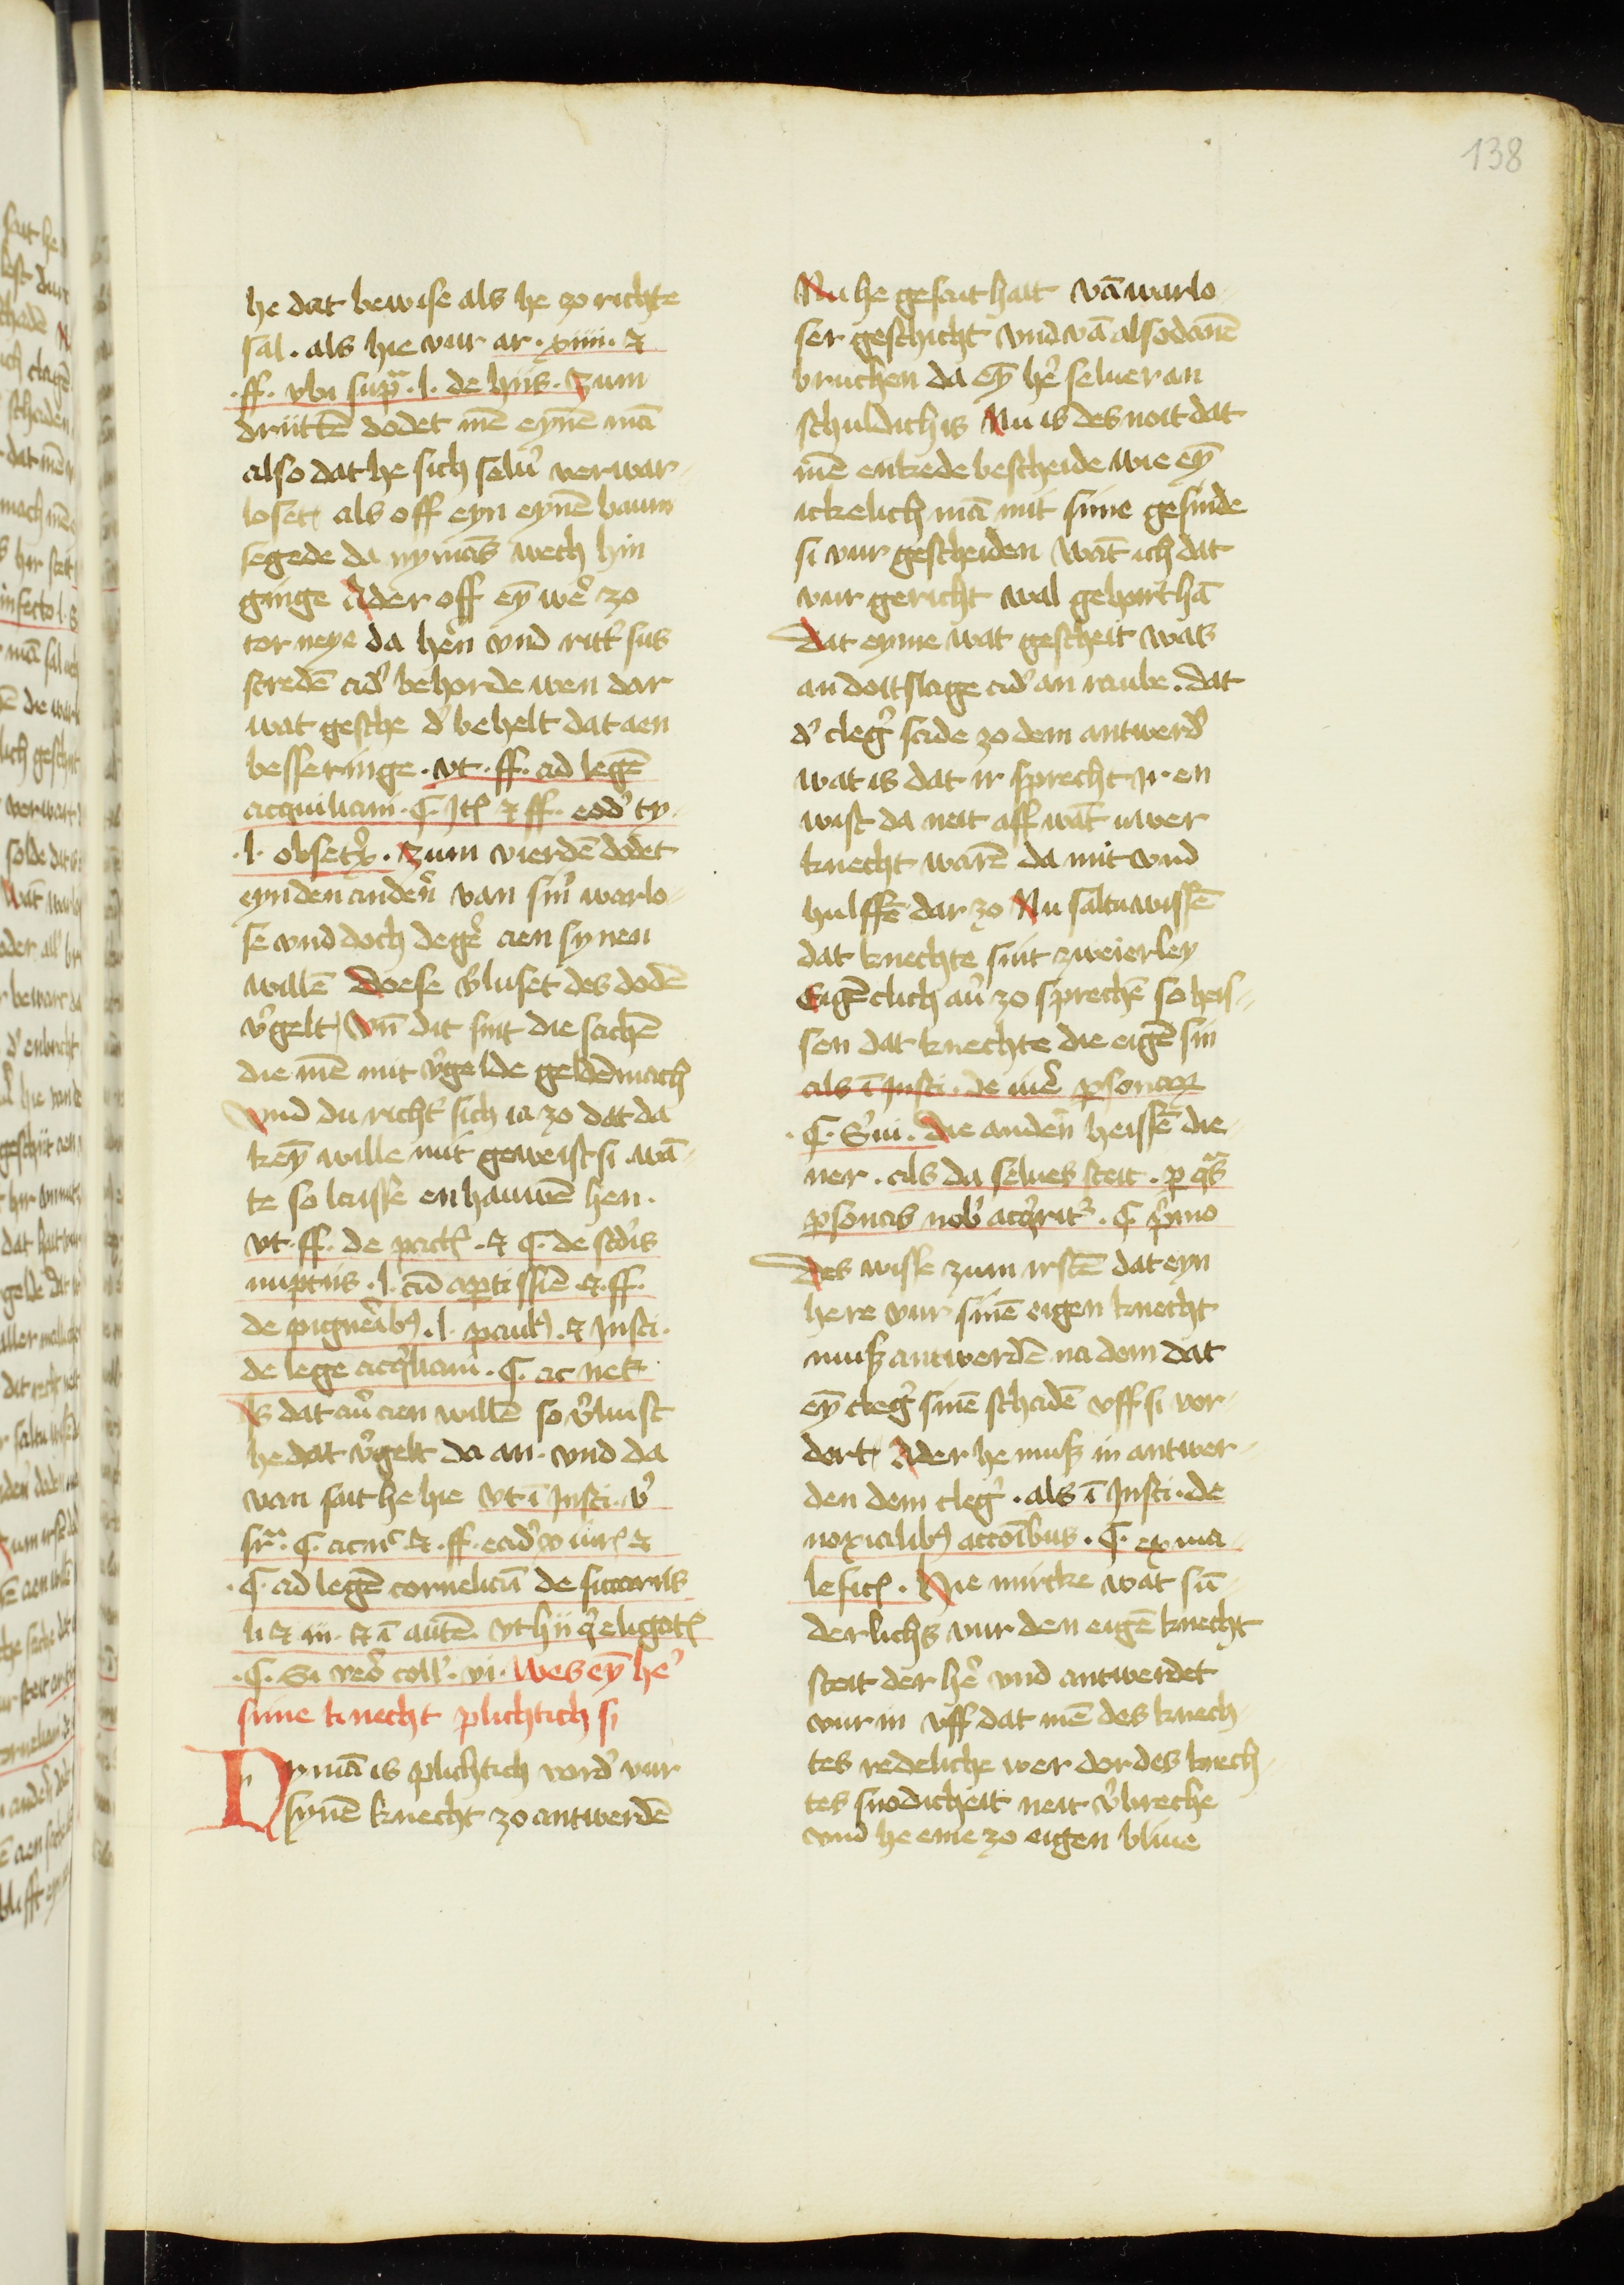 138
he dat bewise als he zo richte
sal . als hie vur ar . xiiii . et
. ff . vbi supᷓ . l . de hiis . Zum
driittē dodet mē eynē mā
also dat he sich selu' verwar-
loset , als off eyn eynē baum
segede da nymās wech hin
ginge Ader off eȳ we' zo
tor neye da he'n vnd ritt' sus
stredē ad' behorde wen dar
wat gesche d' behelt dat aen
besseringe . vt . ff . ad legē
acquiliam . C . Jtē et ff . eod' ty .
. l . obsetx̄ . Zum vierdē dodet
eyn den ande'n van sin' warlo-
se vnd doch dege' aen synen
willē Doese v'luset des dodē
v'gelt , Vn̄ dit sint die sachē
die mē mit v'gelde geldē mach
Vnd du richt' sich ia zo dat da
keȳ wille mit geweist si . wā-
te so laisse en hauwē hen .
vt . ff . de pact' . et C . de scd'is
nuptiis . l . cū aperti ssīe et . ff .
de pigne'ib' . l . paul' . et Insti .
de lege aq'liam . C . ac nek
Is dat au' aen willē so v'luist
he dat v'gelt da an . vnd da
van sait he hie vt ī Insti . v'
sr̄ . C . ac nc' et . ff . ead' iur' et
. C . ad legē corneliā de siccariis
. C . Si ve'o coll' . vi . Wes eȳ he'
sime knecht plichtich si
Nymā is plichtich vord' vur
synē knecht zo antwerdē
Nu he gesait hait vā warlo-
ser geschicht vnd vā alsodanē
bruchen da eȳ he' seluer an
schuldich is Nu is des noit dat
mē enkede bescheide wie eȳ
ickelich mā mit sime gesinde
si vur gescheiden Wāt ich dat
vur gericht wal gehoirt hā
Dat eyme wat gescheit was
an doitslage ad' an raube . dat
d' cleg' saide zo dem antwerd'
wat is dat ir sprecht Ir en
wist da neit aff wāt uwer
knecht warē da mit vnd
hulffē dar zo Nu saltu wissē
dat knechte sint zweierley
Eigēclich au' zo sprechē so heis-
sen dat knechte die eigē sin
als ī Insti . de iure' psonaꝝ
. C . S'ui . Die ande'n heissē die-
ner . als da selues steit . p qᷓs
psonas nob' acq'rit' . C . p'mo
Des wisse zum irstē dat eyn
here vur sinē eigen knecht
muſz antwerdē na dem dat
eȳ cleg' sinē schadē vff si vor-
dert , Ader he muſz in antwer-
den dem cleg' . als ī Insti . de
noxialib' acco'ībus . C . ex ma-
lefic' . Hie mircke wat sū-
derlichs vur den eigē knecht
steit der he' vnd antwerdet
vur in vff dat mē des knech-
tes redeliche wer dor des knech-
tes snodicheit neit v'breche
vnd he eme zo eigen bliue